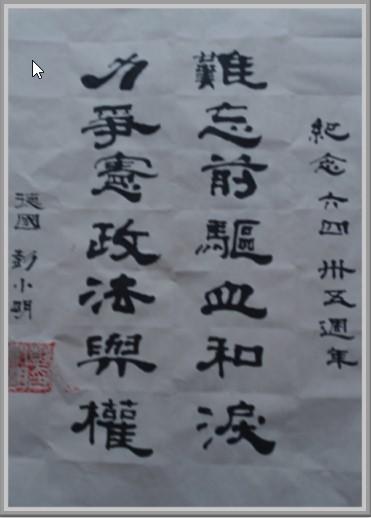 紀念六四卅五週年
難忘前驅血和淚
力爭憲政法與權
德國 彭小明